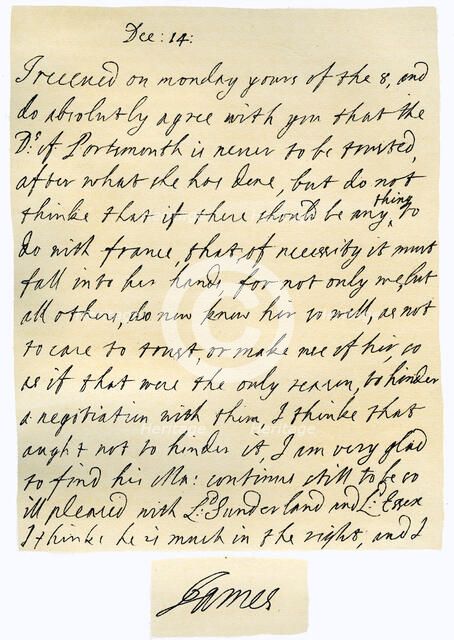 Dec: 14:
I receued on monday yours of the 8, and
do absolutly agree with you that the
Ds. of Portsmouth is never to be trusted,
after what she has done, but do not
thinke that if there should be any thing to
do with france, that of necessity it must
fall into her hands, for not only we, but
all others, do now know her so well, as not
to care to trust, or make use of her, so
as if that were the only reason, to hinder
a negotiation with them, I thinke that
aught not to hinder it, I am very glad
to find his Ma: continus still to be so
ill pleased with Ld. Sunderland and Ld. Essex
I thinke he is much in the right, and I
James
Heritage Heritage